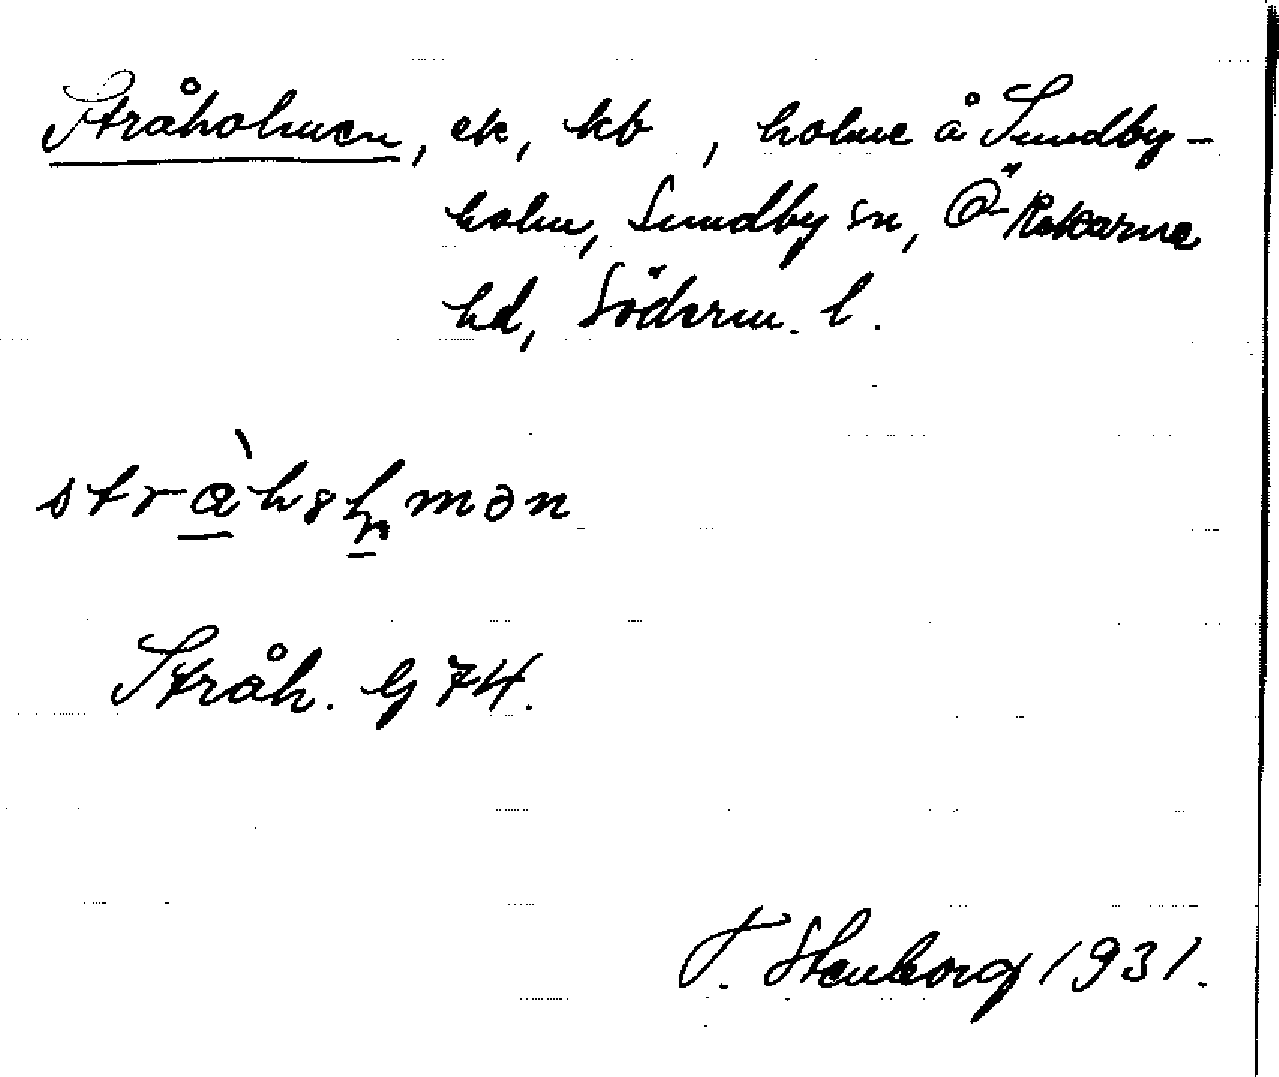 Stråholmen, ek, kb , holme å Sundby-
holm, Sundby sn, Ö-Rekarne
hd, Söderm. l.
stràh8l̥mən
Stråh. G 74.
T. Stenborg 1931.